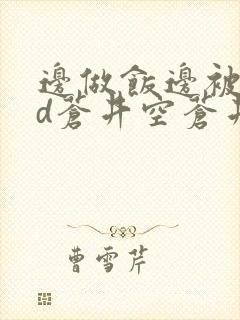 邊做飯邊被
d蒼井空蒼井
曹雪芹